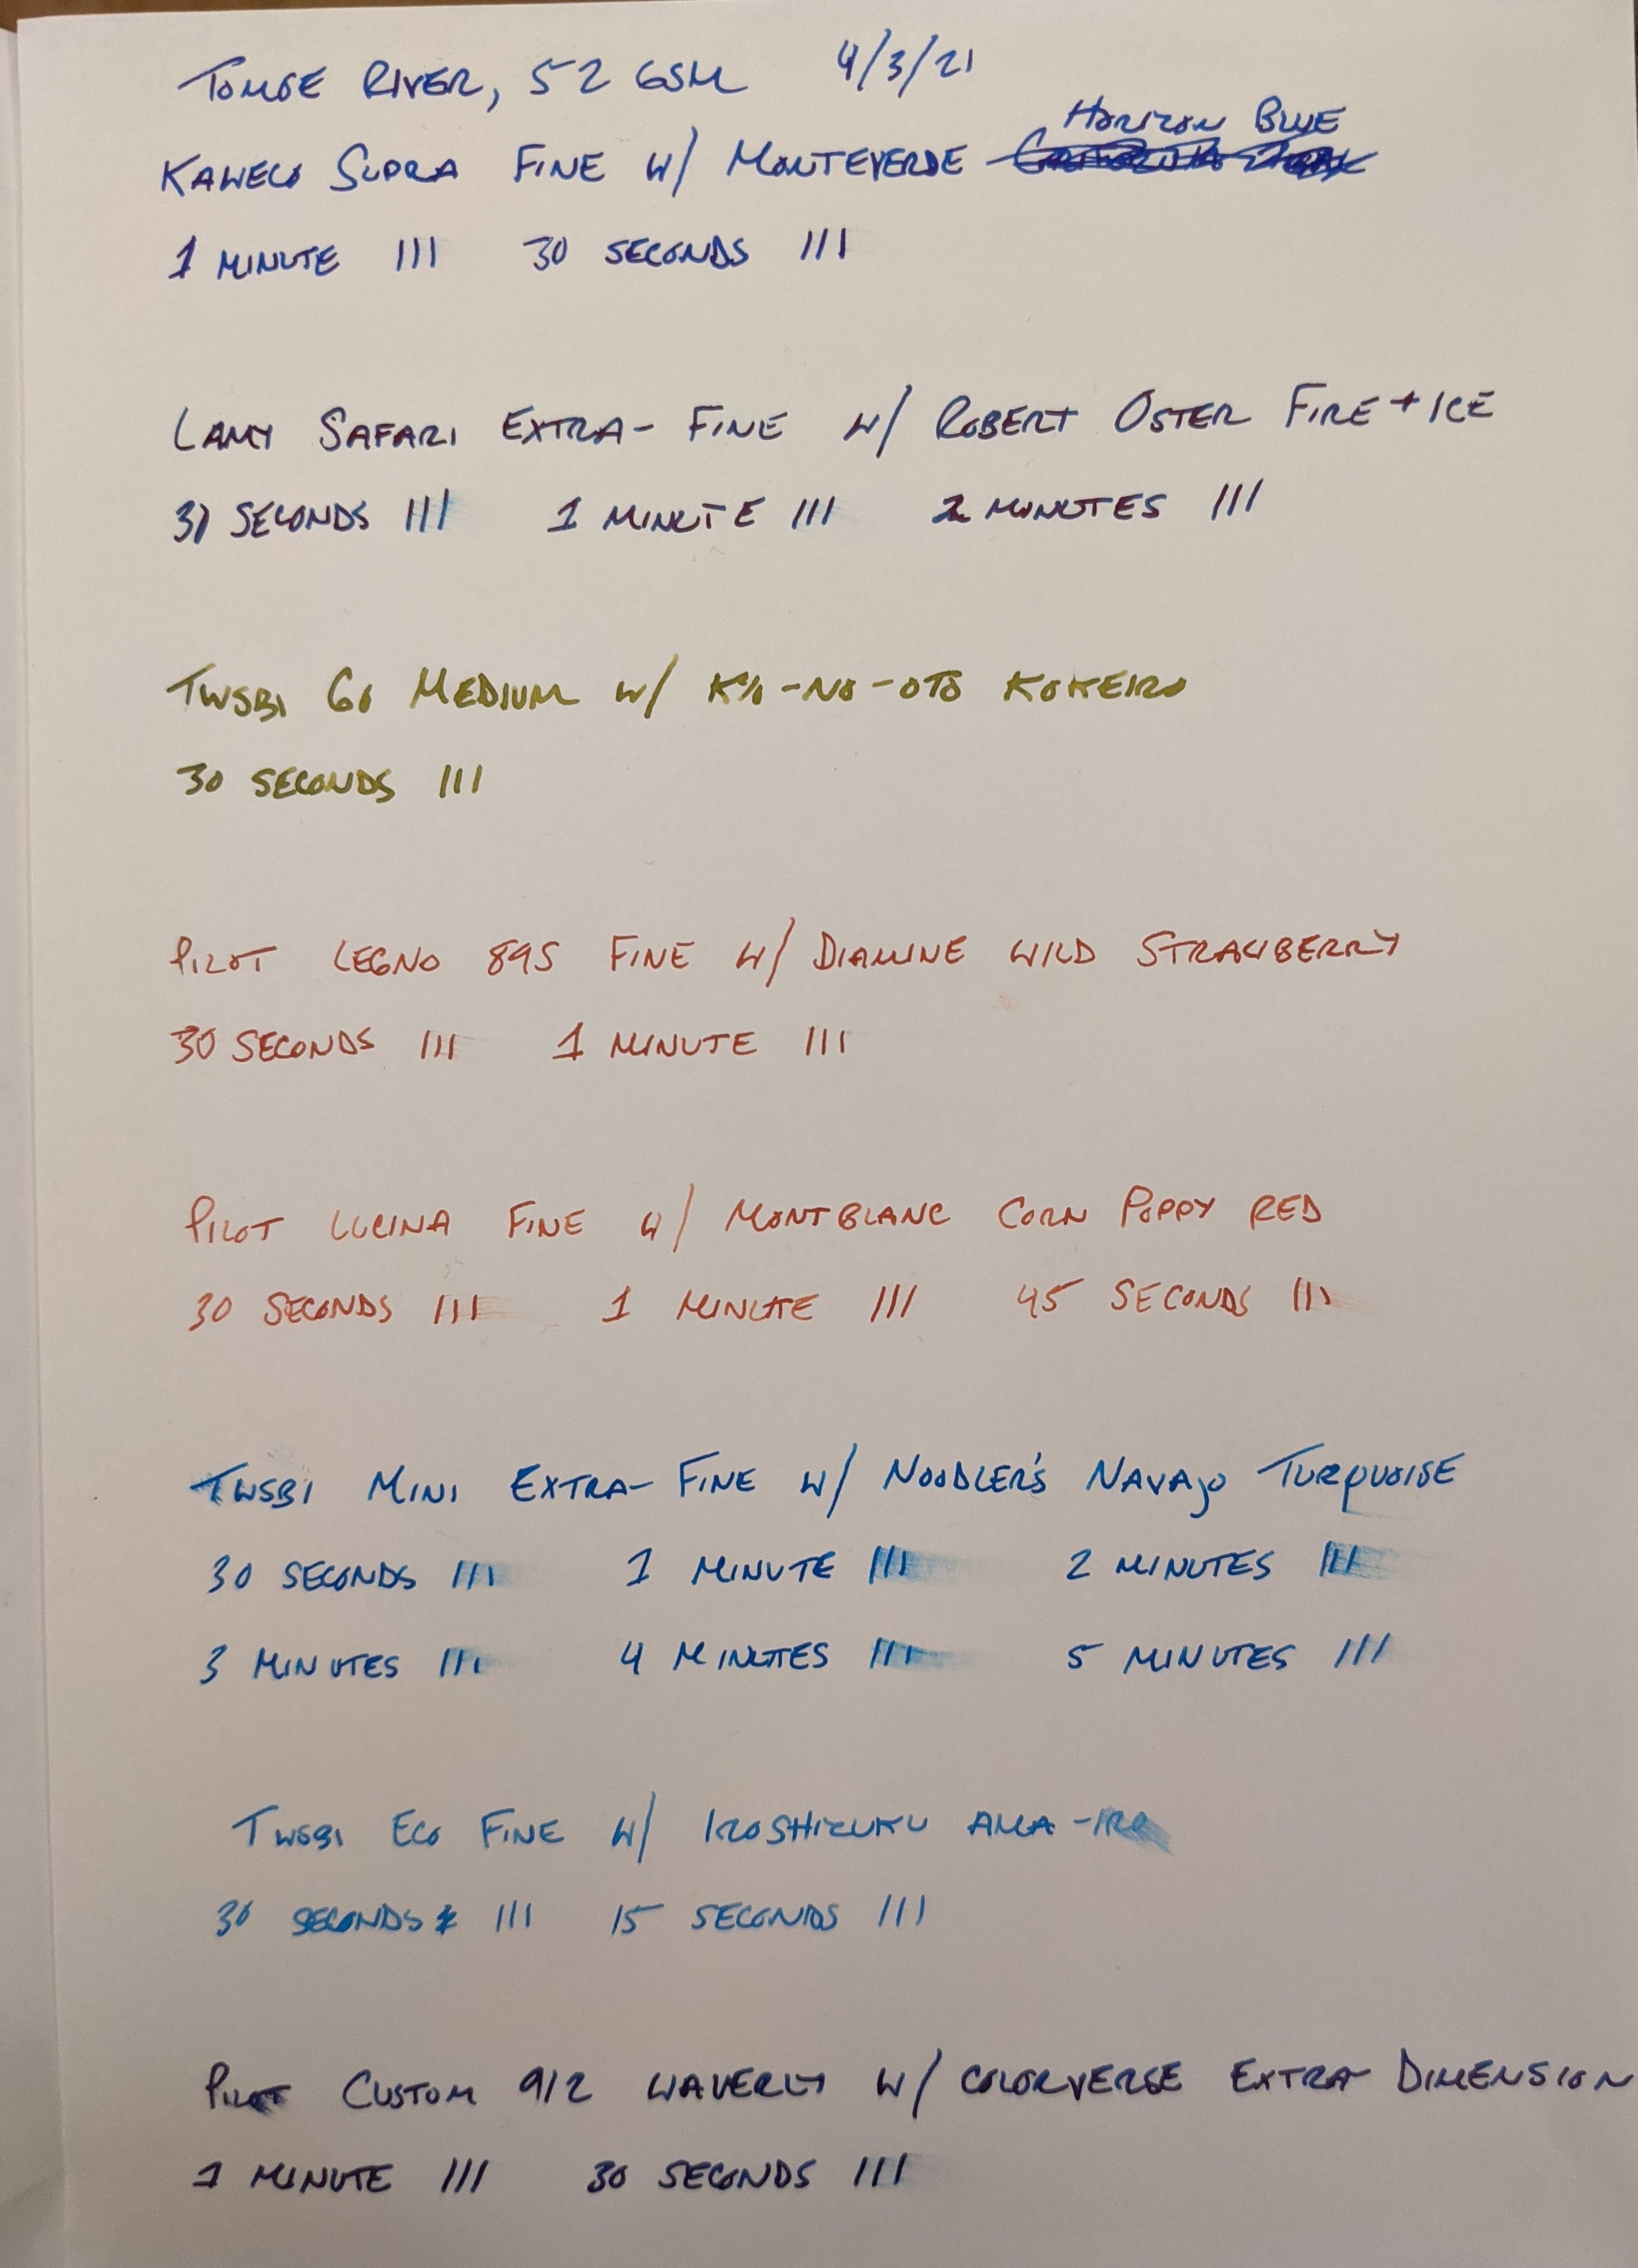 TOMOE RIVER, 52 GSM 4/3/21
HORIZON BLUE
KAWECO SUPRA FINE W/ MONTEVERDE
1 MINUTE III 30 SECONDS III
LAMY SAFARI EXTRA-FINE W/ ROBERT OSTER FIRE + ICE
30 SECONDS III 1 MINUTE III 2 MINUTES III
TWSBI GO MEDIUM W/ KI-NO-OTO KOKEIRO
30 SECONDS III
PILOT LEGNO 89S FINE W/ DIAMINE WILD STRAWBERRY
30 SECONDS III 1 MINUTE III
PILOT LUCINA FINE W/ MONTBLANC CORN POPPY RED
30 SECONDS III 1 MINUTE III 45 SECONDS III
TWSBI MINI EXTRA-FINE W/ NOODLER'S NAVAJO TURQUOISE
30 SECONDS III 1 MINUTE III 2 MINUTES III
3 MINUTES III 4 MINUTES III 5 MINUTES III
TWSBI ECO FINE W/ IROSHIZUKU AMA-IRO
30 SECONDS III 15 SECONDS III
PILOT CUSTOM 912 WAVERLY W/ COLORVERSE EXTRA DIMENSION
1 MINUTE III 30 SECONDS III